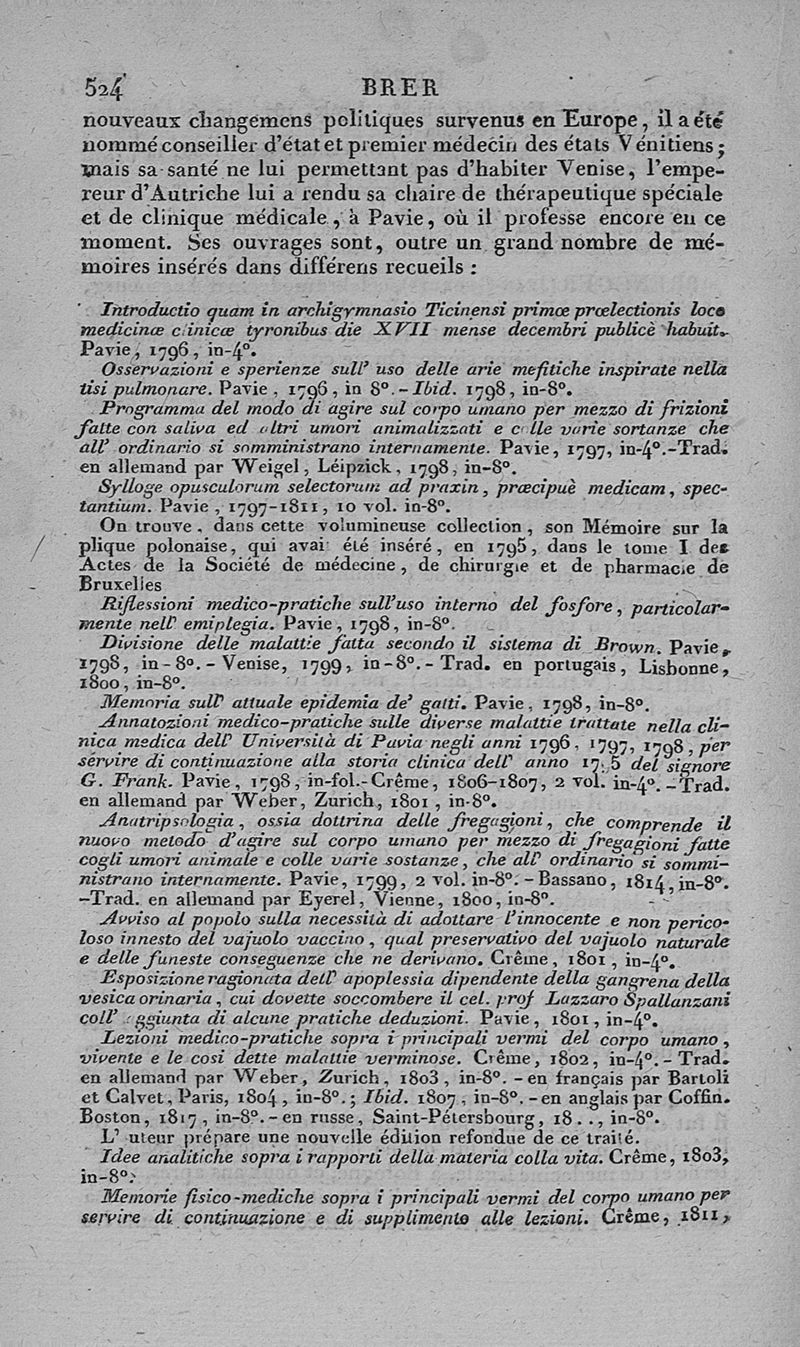 524
BRER
nouveaux changemens politiques survenus en Europe, il a été
nommé conseiller d'état et premier médecin des états Vénitiens;
mais sa santé ne lui permettant pas d'habiter Venise, l'empe-
reur d'Autriche lui a rendu sa chaire de thérapeutique spéciale
et de clinique médicale, à Pavie, où il professe encore en ce
moment. Ses ouvrages sont, outre un grand nombre de mé-
moires insérés dans différens recueils :
Introductio quam in archigymnasio Ticinensi primœ prœlectionis loco
medicinœ clinicœ tyronibus die XVII mense decembri publicè habuit.
Pavie, 1796, in-4°.
Osservazioni e sperienze sull' uso delle arie mefitiche inspirate nella
tisi pulmonare. Pavie, 1796, in 8°.-Ibid. 1798, in-8°.
Programma del modo di agire sul corpo umano per mezzo di frizioni
fatte con saliva ed altri umori animalizzati e colle varie sortanze che
all' ordinario si somministrano internamente. Pavie, 1797, in-4°.-Trad.
en allemand par Weigel, Léipzick, 1798, in-8°.
Sylloge opusculorum selectorum ad praxin, prœcipuè medicam, spec-
tantium. Pavie, 1797-1811, 10 vol. in-8°.
On trouve, dans cette volumineuse collection, son Mémoire sur la
plique polonaise, qui avait été inséré, en 1795, dans le tome I des
Actes de la Société de médecine, de chirurgie et de pharmacie de
Bruxelles
Riflessioni medico-pratiche sull'uso interno del fosfore, particolar-
mente nell' emiplegia. Pavie, 1798, in-8°.
Divisione delle malattie fatta secondo il sistema di Brown. Pavie,
1798, in-8°.- Venise, 1799, in-8°.- Trad. en portugais, Lisbonne,
1800, in-8°.
Memoria sull' attuale epidemia de' gatti. Pavie, 1798, in-8°.
Annatozioni medico-pratiche sulle diverse malattie trattate nella cli-
nica medica dell' Università di Pavia negli anni 1796, 1797, 1798, per
servire di continuazione alla storia clinica dell' anno 1795 del signore
G. Frank. Pavie, 1798, in-fol.-Crême, 1806-1807, 2 vol. in-4°.-Trad.
en allemand par Weber, Zurich, 1801, in-8°.
Anatripsologia, ossia dottrina delle fregagioni, che comprende il
nuovo metodo d'agire sul corpo umano per mezzo di fregagioni fatte
cogli umori animale e colle varie sostanze, che all' ordinario si sommi-
nistrano internamente. Pavie, 1799, 2 vol. in-8°.-Bassano, 1814, in-8°.
-Trad. en allemand par Eyerel, Vienne, 1800, in-8°.
Avviso al popolo sulla necessità di adottare l'innocente e non perico-
loso innesto del vajuolo vaccino, qual preservativo del vajuolo naturale
e delle funeste conseguenze che ne derivano. Crême, 1801, in-4°.
Esposizione ragionata dell' apoplessia dipendente della gangrena della
vesica orinaria, cui dovette soccombere il cel. prof Lazzaro Spallanzani
coll' aggiunta di alcune pratiche deduzioni. Pavie, 1801, in-4°.
Lezioni medico-pratiche sopra i principali vermi del corpo umano,
vivente e le cosi dette malattie verminose. Crême, 1802, in-4°.- Trad.
en allemand par Weber, Zurich, 1803, in-8°.-en français par Bartoli
et Calvet, Paris, 1804, in-8°.; Ibid. 1807, in-8°.-en anglais par Coffin.
Boston, 1817, in-8°.-en russe, Saint-Pétersbourg, 18.., in-8°.
L' uteur prépare une nouvelle édition refondue de ce traité.
Idee analitiche sopra i rapporti della materia colla vita. Crême, 1803,
in-8°.
Memorie fisico-mediche sopra i principali vermi del corpo umano per
servire di continuazione e di supplimento alle lezioni. Crême, 1811,